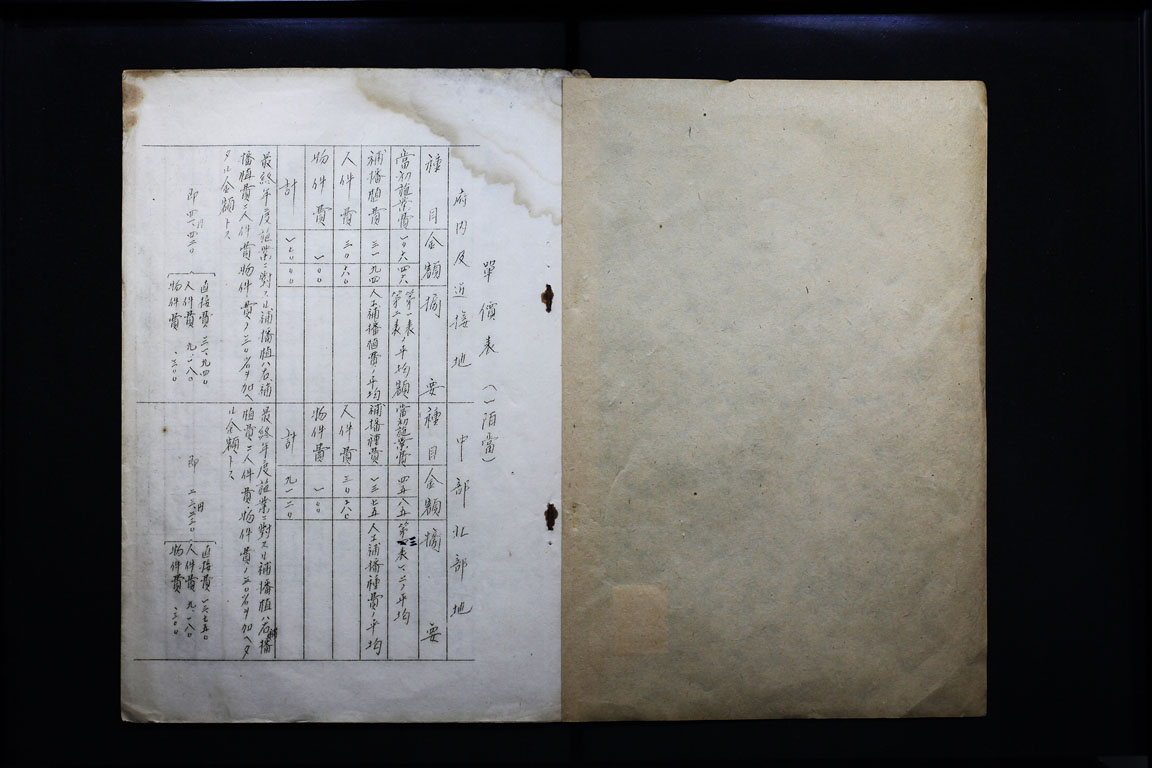 單價表(一陌當)
府内及近接地
種目 金額 摘要
當初施業費 一〇六 四六 第一表、第二表ノ平均額
補播植費 三一 九四 人工補播植費ノ平均
人件費 三〇 六〇
物件費 一 〇〇
計 一七〇 〇〇
最終年度施業ニ對スル補播植ハ右補
播植費ニ人件費物件費ノ三〇%ヲ加ヘ
タル金額トス
即 四一・四二〇
直接費 三一・九四〇
人件費 九・一八〇
物件費 ・三〇〇
中部北部地
種目 金額 摘要
當初施業費 四五 八五 第三表一、二ノ平均
補播種費 一三 七五 人工補播種費ノ平均
人件費 三〇 六〇
物件費 一 〇〇
計 九一 二〇
最終年度施業ニ對スル補播植ハ右補播
植費ニ人件費物件費ノ三〇%ヲ加ヘタ
ル金額トス
即 円
直接費
人件費 九・一八〇
物件費 ・三〇〇